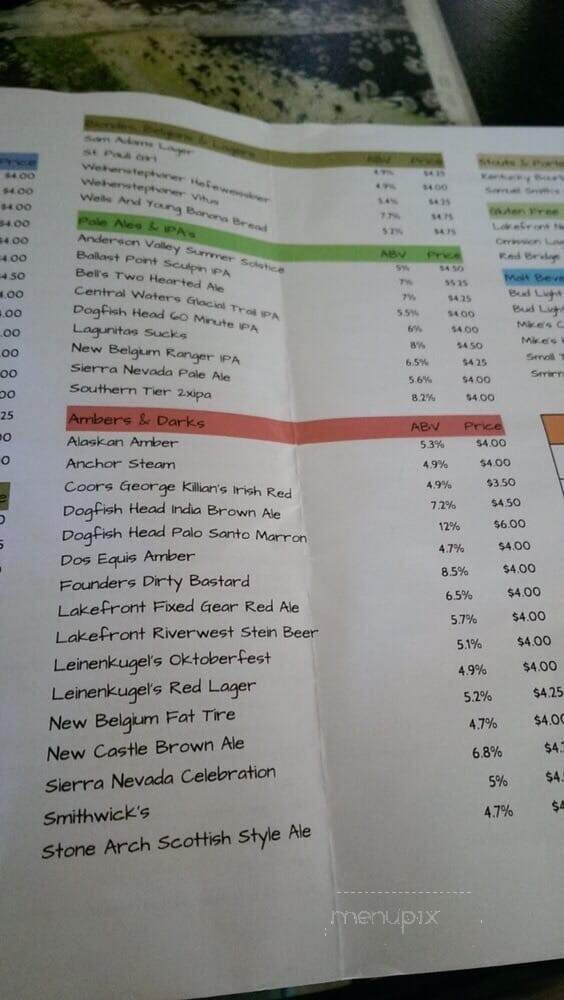 Price
$4.00
$4.00
$4.00
$4.00
$4.00
4.50
4.00
4.00
.00
.00
00
00
25
00
0
Blondes, Belgians & Lagers ABV Price
Sam Adams Lager 4.9% $4.25
St. Pauli Girl 4.9% $4.00
Weihenstephaner Hefeweissbier 5.4% $4.25
Weihenstephaner Vitus 7.7% $4.75
Wells And Young Banana Bread 5.2% $4.75
Pale Ales & IPAs ABV Price
Anderson Valley Summer Solstice 5% $4.50
Ballast Point Sculpin IPA 7% $5.25
Bell's Two Hearted Ale 7% $4.25
Central Waters Glacial Trail IPA 5.5% $4.00
Dogfish Head 60 Minute IPA 6% $4.00
Lagunitas Sucks 8% $4.50
New Belgium Ranger IPA 6.5% $4.25
Sierra Nevada Pale Ale 5.6% $4.00
Southern Tier 2xipa 8.2% $4.00
Ambers & Darks ABV Price
Alaskan Amber 5.3% $4.00
Anchor Steam 4.9% $4.00
Coors George Killian's Irish Red 4.9% $3.50
Dogfish Head India Brown Ale 7.2% $4.50
Dogfish Head Palo Santo Marron 12% $6.00
Dos Equis Amber 4.7% $4.00
Founders Dirty Bastard 8.5% $4.00
Lakefront Fixed Gear Red Ale 6.5% $4.00
Lakefront Riverwest Stein Beer 5.7% $4.00
Leinenkugel's Oktoberfest 5.1% $4.00
Leinenkugel's Red Lager 4.9% $4.00
New Belgium Fat Tire 5.2% $4.25
New Castle Brown Ale 4.7% $4.00
Sierra Nevada Celebration 6.8% $4.
Smithwick's 5% $4.
Stone Arch Scottish Style Ale 4.7% $4
Stouts & Porte
Kentucky Bourb
Samuel Smith's
Gluten Free
Lakefront N
Omission La
Red Bridge
Malt Beve
Bud Light
Bud Light
Mike's C
Mike's H
Small T
Smirn
menupix